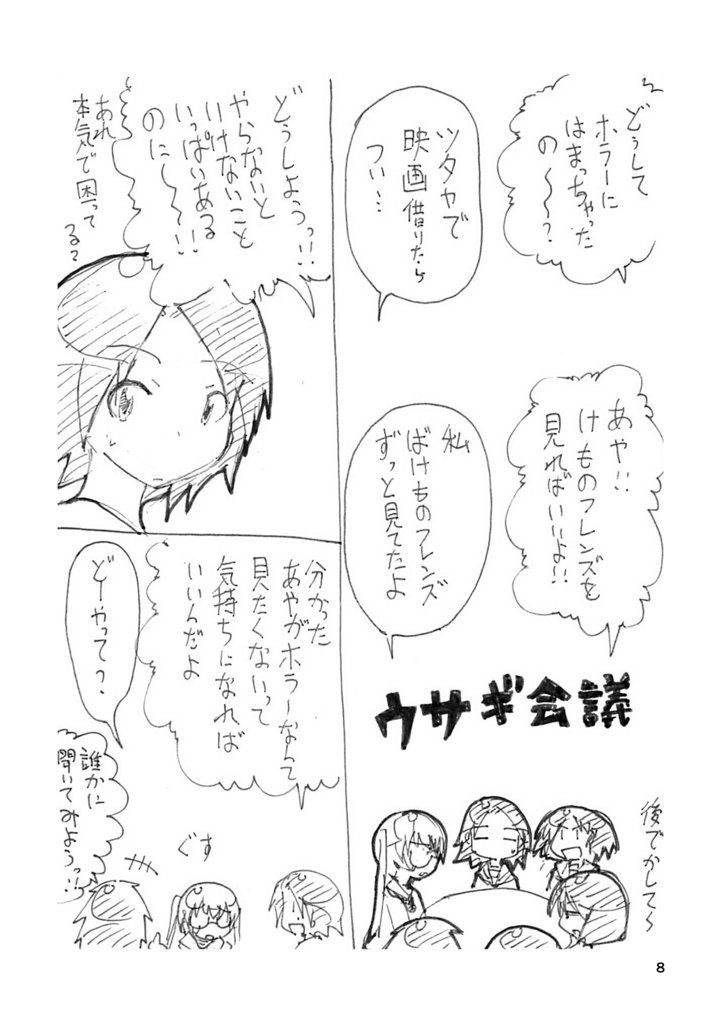 どうして
ホラーに
はまっちゃった
の〜〜?
ツタヤで
映画借りたら
つい…
あや!!
けものフレンズを
見ればいいよ!!
私
ばけものフレンズ
ずっと見てたよ
ウサギ会議
後でかして〜
どうしようっ!!
やらないと
いけないこと
いっぱいある
のに〜〜!!
あれ
本気で困って
る?
分かった
あやがホラーなんて
見たくないって
気持ちになれば
いいんだよ
どーやって?
誰かに
聞いてみようっ!!
ぐす
8